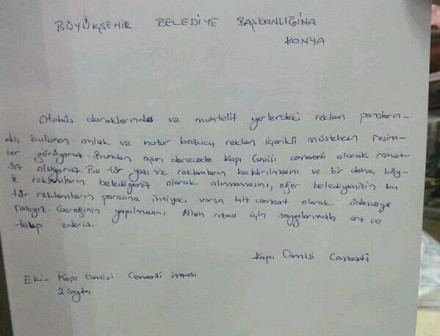 BÜYÜKŞEHİR BELEDİYE BAŞKANLIĞINA
KONYA
Otobüs duraklarındaki ve muhtelif yerlerdeki reklam panoların-
da, bulunan ahlak ve nutur bozucu reklam içerikli müstehcen resim-
ler görüyoruz. Bundan aşırı derecede Kapı Camisi cemaati olarak rahat-
sız oluyoruz. Bu tür yazı ve reklamların kaldırılmasını ve bir daha, böy-
le reklamların belediyeniz olarak alınmamasını, eğer belediyenizin bu
tür reklamların parasına ihtiyacı varsa biz cemaat olarak ödemeye
razıyız. Gereğinin yapılmasını Allah rızası için saygılarımızla arz ve
talep ederiz.
Kapı Camisi Cemaati
Eki- Kapı Camisi Cemaati imzası
2 Sayfa